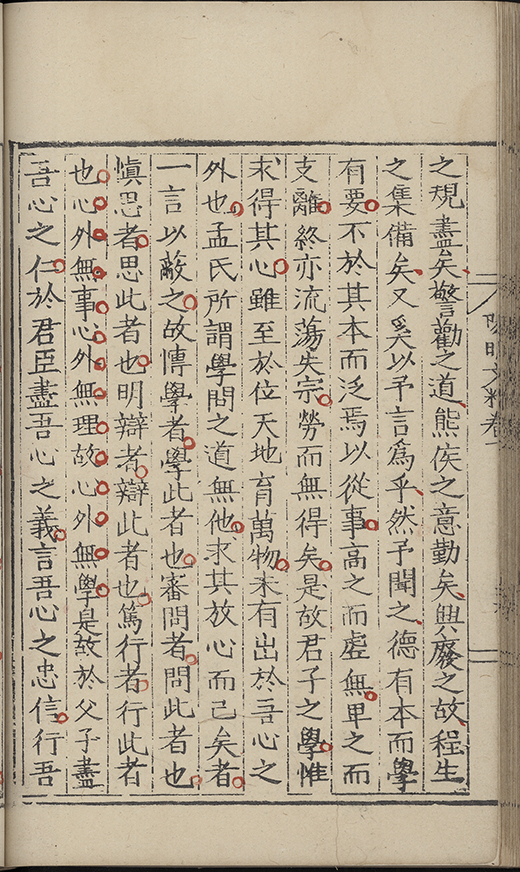 陽明文粹卷一
之規盡矣警勸之道熊侯之意勤矣興廢之故程生
之集備矣又奚以予言爲乎然予聞之德有本而學
有要不於其本而泛焉以從事高之而虛無卑之而
支離終亦流蕩失宗勞而無得矣是故君子之學惟
求得其心雖至於位天地育萬物未有出於吾心之
外也孟氏所謂學問之道無他求其放心而已矣者
一言以蔽之故慱學者學此者也審問者問此者也
愼思者思此者也明辯者辯此者也篤行者行此者
也心外無事心外無理故心外無學是故於父子盡
吾心之仁於君臣盡吾心之義言吾心之忠信行吾